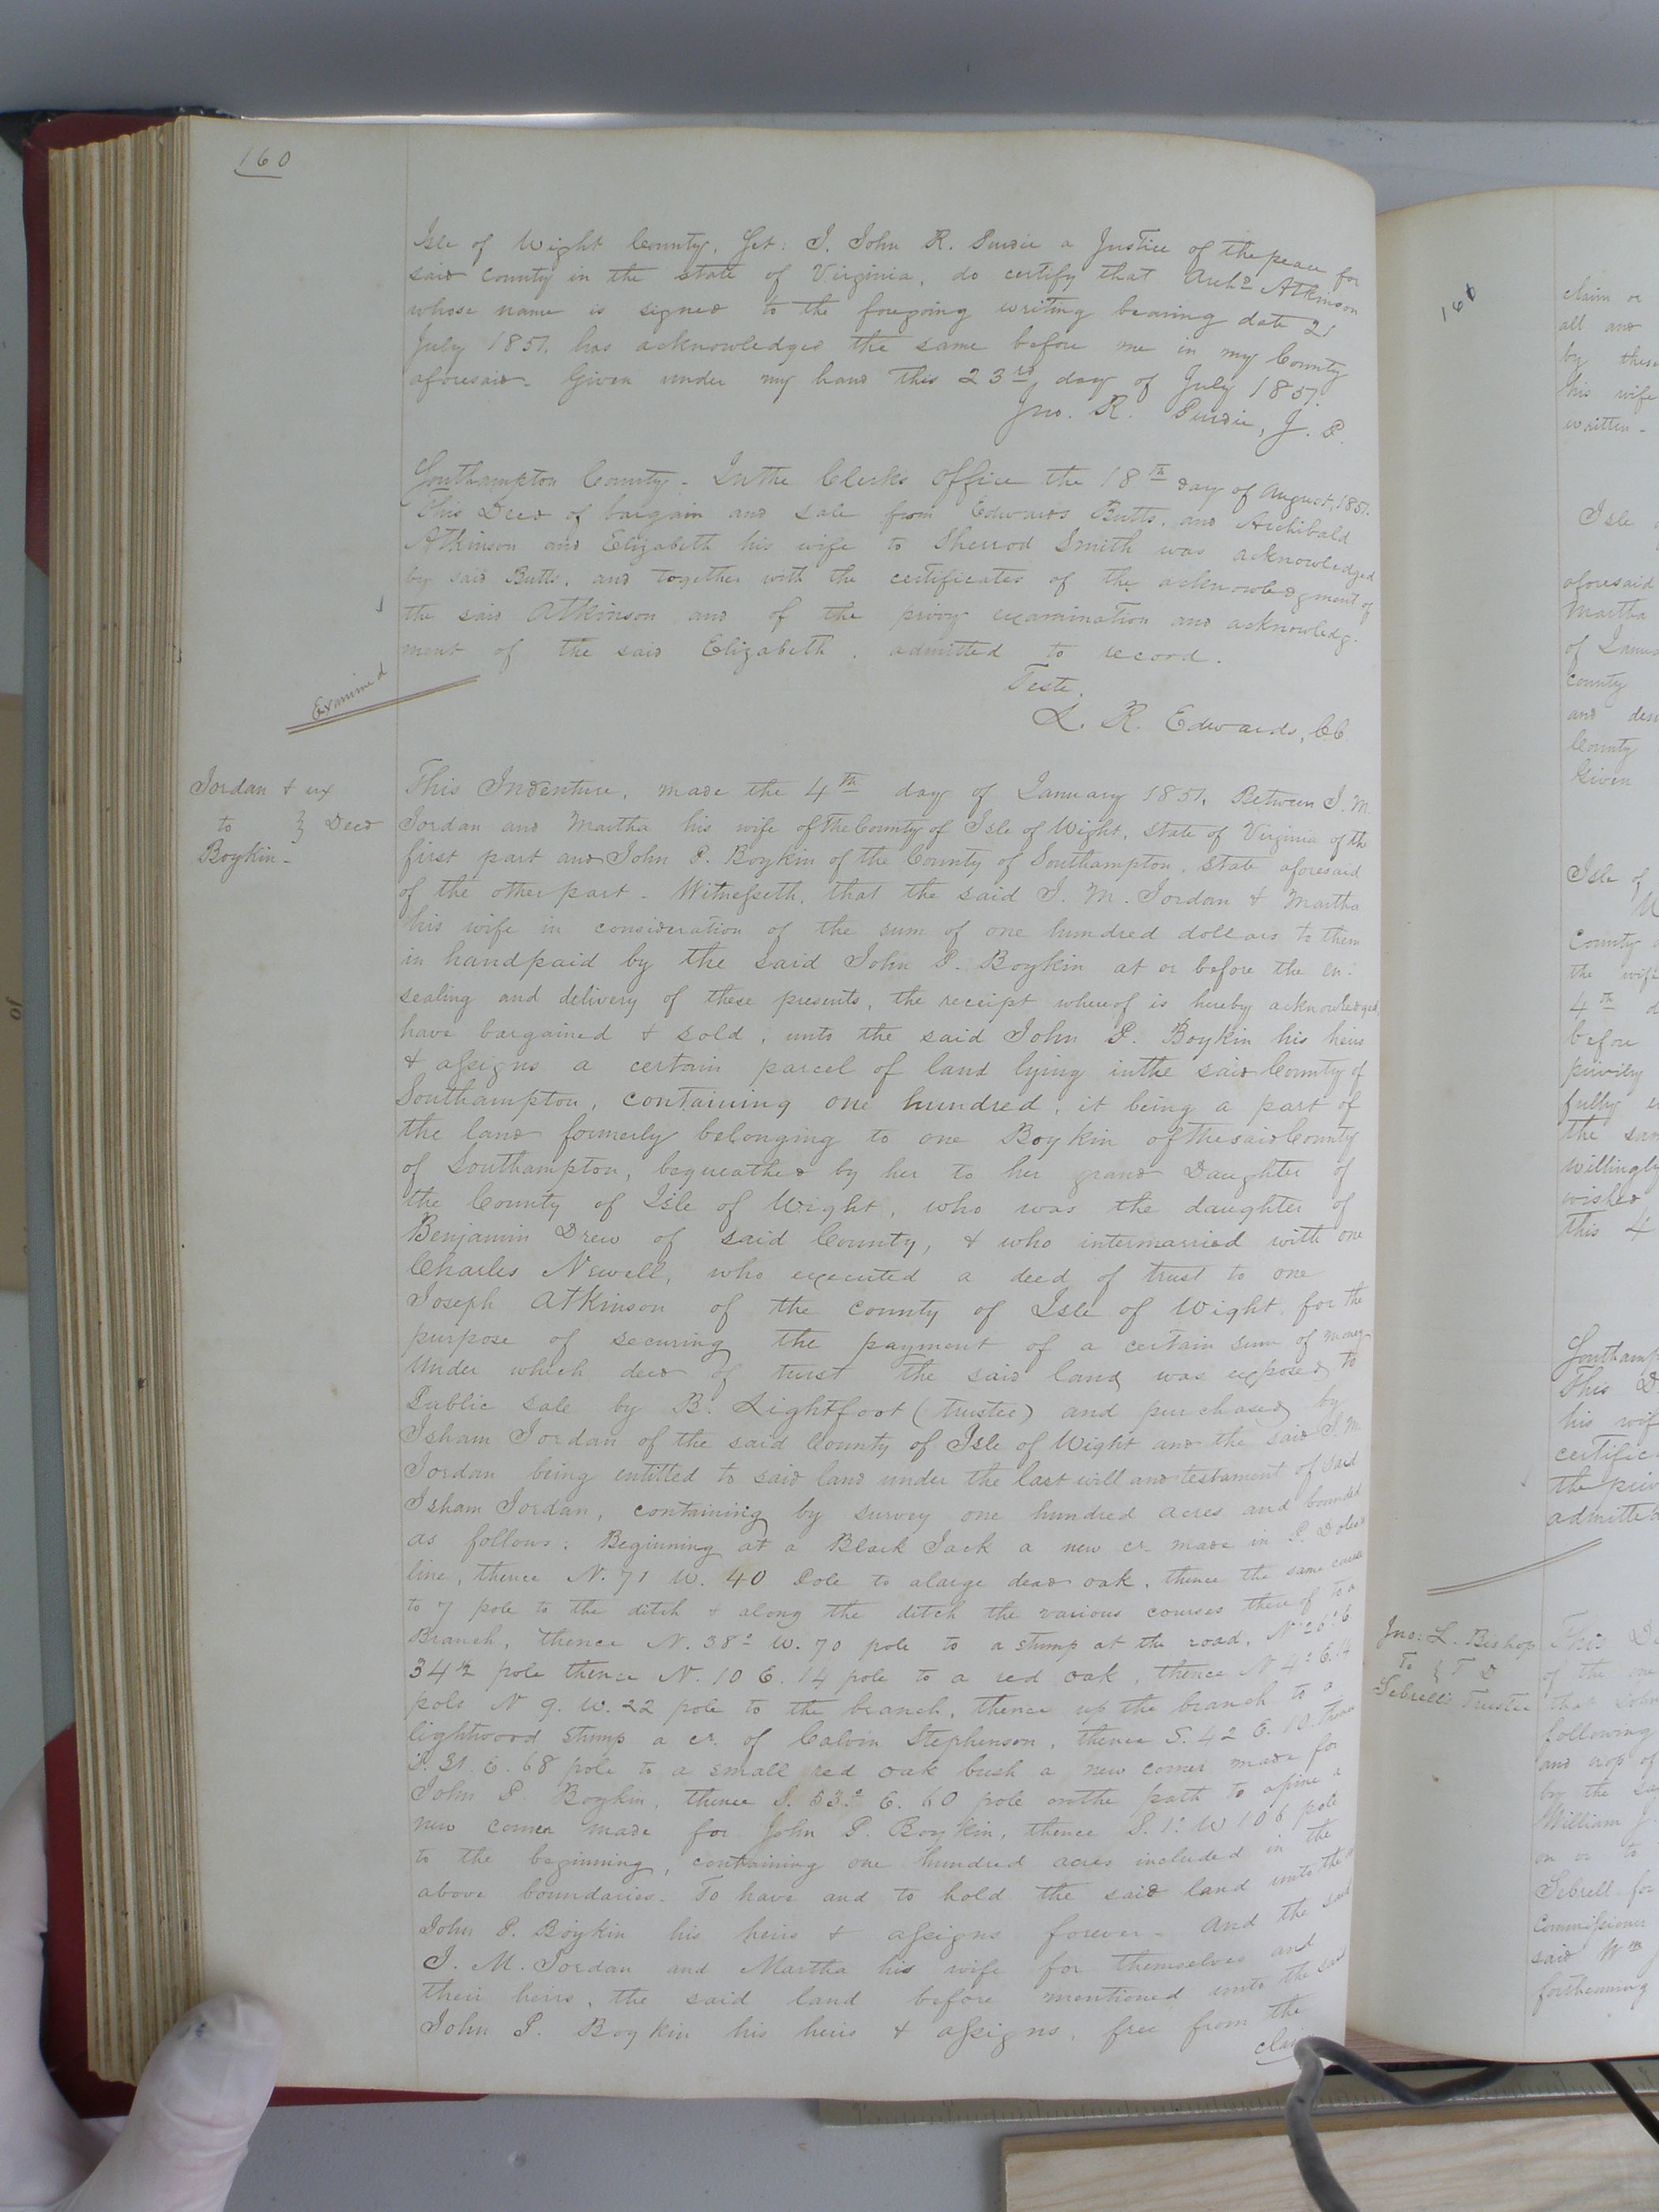 160
Isle of Wight County, Sct: I. John R. Purdie a Justice of the peace for
said County in the state of Virginia, do certify that Archd Atkinson
whose name is signed to the foregoing writing bearing date 21
July 1851. has acknowledged the same before me in my County
aforesaid. Given under my hand this 23rd day of July 1851.
Jno. R. Purdie, J. P.
Southampton County - In the Clerks Office the 18th day of August, 1851.
This Deed of bargain and sale from Edwards Butts, and Archibald
Atkinson and Elizabeth his wife to Sherrod Smith was acknowledged
by said Butts, and together with the certificates of the acknowledgment of
the said Atkinson and of the privy examination and acknowledg-
ment of the said Elizabeth, admitted to record.
Teste,
L. R. Edwards, CC
Examined
Jordan & ux
to } Deed
Boykin -
This Indenture, made the 4th day of January 1851, Between J. M.
Jordan and Martha his wife of the County of Isle of Wight, State of Virginia of th
first part and John P. Boykin of the County of Southampton, State aforesaid
of the other part - Witnesseth, that the said J. M. Jordan & Martha
his wife in consideration of the sum of one hundred dollars to them
in hand paid by the said John P. Boykin at or before the en:
sealing and delivery of these presents, the receipt whereof is hereby acknowledged,
have bargained & sold, unto the said John P. Boykin his heirs
& assigns a certain parcel of land lying in the said County of
Southampton, containing one hundred, it being a part of
the land formerly belonging to one Boykin of the said County
of Southampton, bequeathed by her to her grand Daughter of
the County of Isle of Wight, who was the daughter of
Benjamin Drew of said County, & who intermarried with one
Charles Newell, who executed a deed of trust to one
Joseph Atkinson of the county of Isle of Wight for the
purpose of securing the payment of a certain sum of money
Under which deed of turst the said land was exposed to
Public sale by B. Lightfoot (trustee) and purchased by
Isham Jordan of the said County of Isle of Wight and the said J. M
Jordan being entitled to said land under the last will and testament of said
Isham Jordan, containing by survey one hundred acres and bounded
as follows: Beginning at a Black Jack a new cr. made in P. Doles
line, thence N. 71 W. 40 Pole to a large dead oak, thence the same course
to 7 pole to the ditch & along the ditch the various courses thereof to a
Branch, thence N. 38° W. 70 pole to a stump at the road,
34½ pole thence N. 10 E. 14 pole to a red oak, thence N 4° E. 14
pole N 9. W. 22 pole to the branch, thence up the branch to a
lightwood stump a cr. of Calvin Stephenson, thence S. 42 E. 10. thence
S. 31. E. 68 pole to a small red oak bush a new corner made for
John P. Boykin, thence S. 53° E. 60 pole on the path to a pine a
new corner made for John P. Boykin, thence S. 1° W 106 pole
to the beginning, containing one hundred acres included in the
above boundaries. To have and to hold the said land unto the
John P. Boykin his heirs & assigns forever - And the said
J. M. Jordan and Martha his wife for themselves and
their heirs, the said land before mentioned unto the said
John P. Boykin his heirs & assigns, free from the
claim
161
claim or
all and
by these
his wife
written -
Isle
aforesaid
Martha
of Janua
County
and
County
Given
Isle of
County
the wife
4th
before
privily
fully
the sam
willingly
wished
this 4
Southamp
This D
his wif
certific
the priv
admitted
Jno: L. Bishop
To } T D
Sebrell Trustee
This De
of the one
that John
following
and crop of
by the sa
William J.
on or to
Sebrell for
Commissioner
said Wm
forthcoming